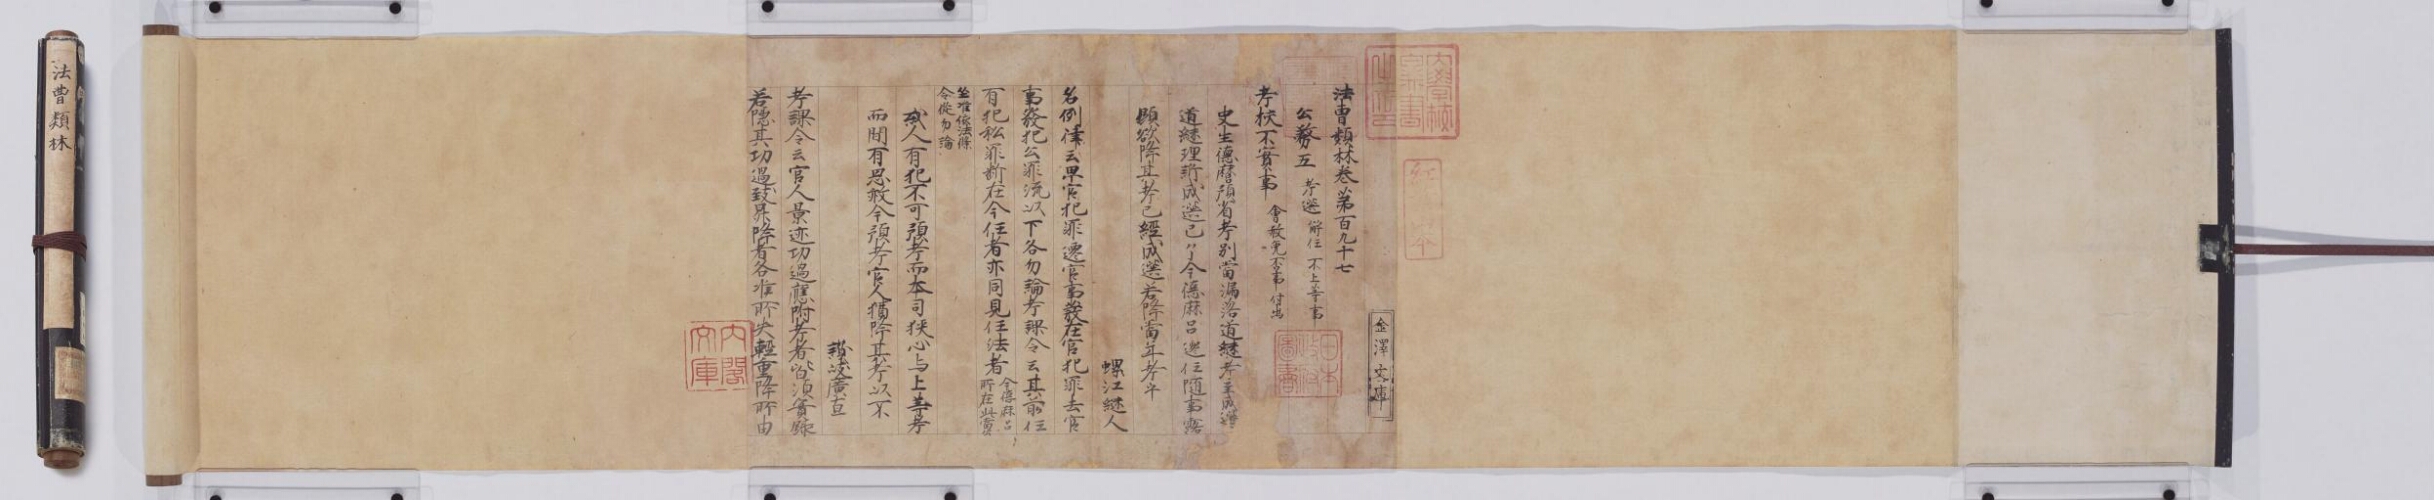 法曹類林
法曹類林卷第百九十七
公務五 考選 解任 不上等事
會赦免不事 付出
考状不實事
史生德麿預省考別當漏落道継考至成選
道継理訴成選已了今德麻呂遷任隨事露
顕欲降其考已經成選若降當年考乎
螺江継人
名例律云卑官犯罪遷官事發在官犯罪去官
事發犯公罪流以下各勿論考課令云其前任
有犯私罪断在今任者亦同見任法者
今德麻呂
所在此賞
並准依法條
令從勿論
或人有犯不可預考而本司狭心与上等考
而間有恩赦令預考官人猶降其考以不
讃岐廣直
考課令云官人景迹功過應附考者皆須實録
若隠其功過致昇降者各准所失輕重降所由
金澤文庫
日本
政府
圖書
内閣
文庫